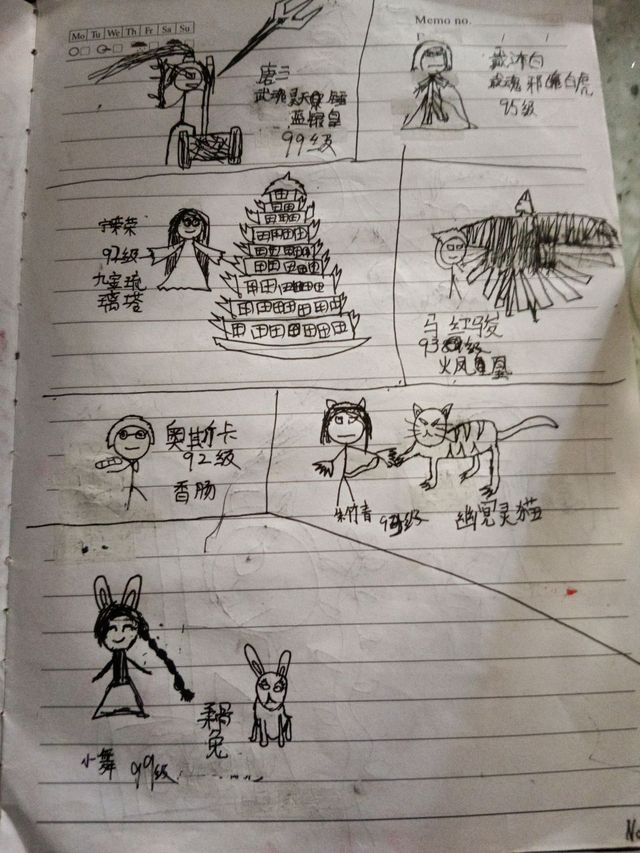 Mo Tu We Th Fr Sa Su
Memo no.
唐三
武魂昊天锤
蓝银皇
99级
戴沐白
武魂 邪眸白虎
95级
宁荣荣
97级
九宝琉
璃塔
马红俊
火凤凰
奥斯卡
92级
香肠
朱竹青
幽冥灵猫
兔
小舞
99级